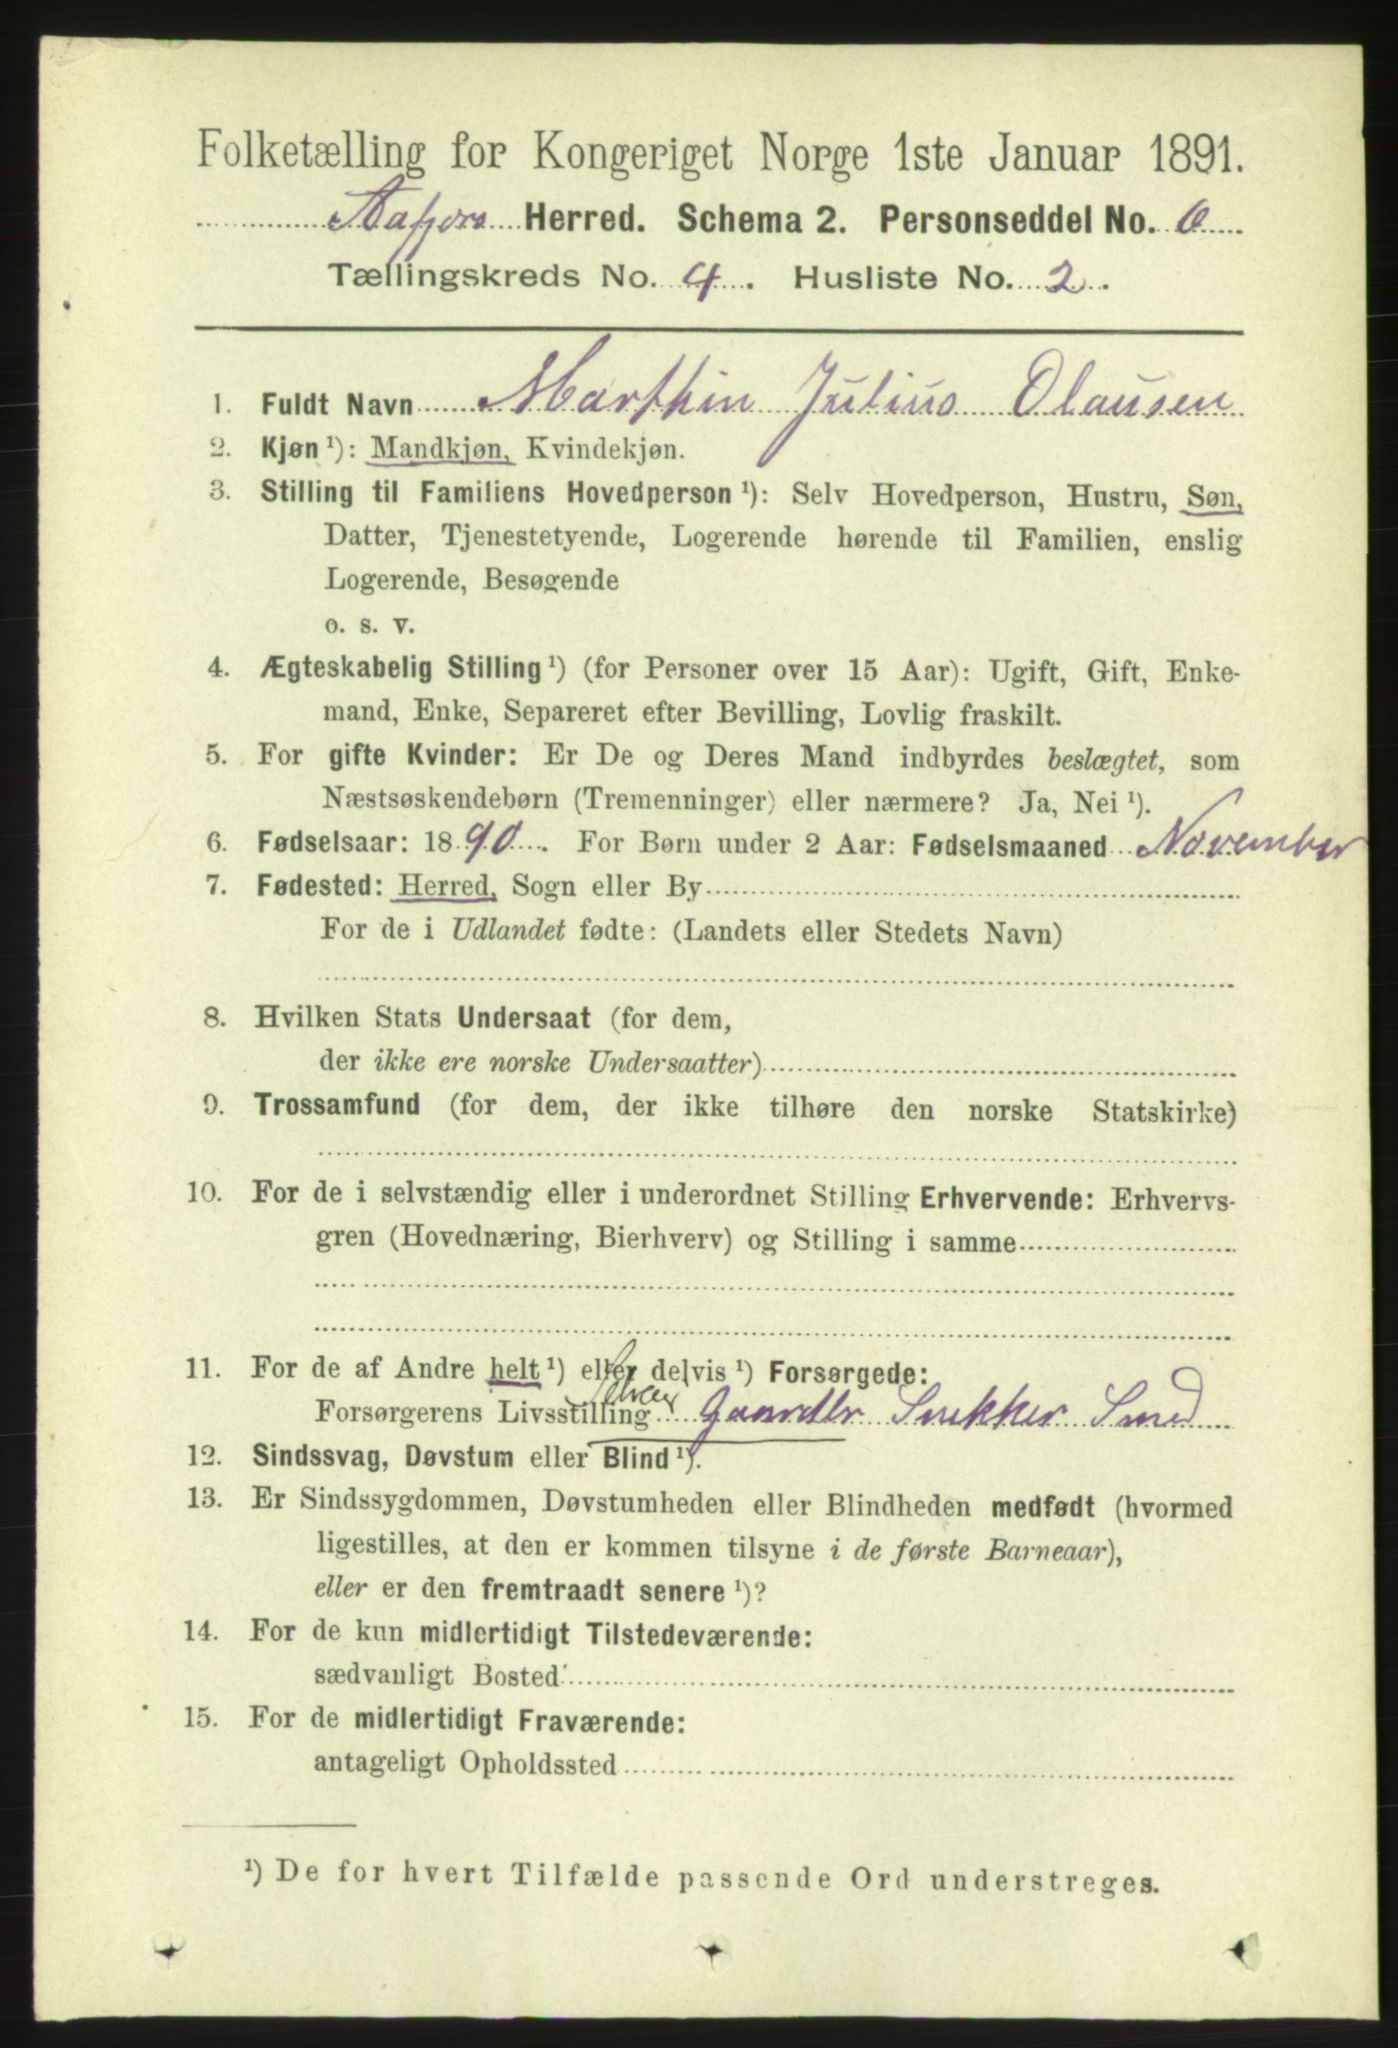 Folketælling for Kongeriget Norge 1ste Januar 1891.
Aafjord Herred. Schema 2. Personseddel No. 6
Tællingskreds No. 4. Husliste No. 2.
1. Fuldt Navn Marthin Julius Olausen
2. Kjøn ¹): Mandkjøn, Kvindekjøn.
3. Stilling til Familiens Hovedperson ¹): Selv Hovedperson, Hustru, Søn,
Datter, Tjenestetyende, Logerende hørende til Familien, enslig
Logerende, Besøgende
o. s. v.
4. Ægteskabelig Stilling ¹) (for Personer over 15 Aar): Ugift, Gift, Enke-
mand, Enke, Separeret efter Bevilling, Lovlig fraskilt.
5. For gifte Kvinder: Er De og Deres Mand indbyrdes beslægtet, som
Næstsøskendebørn (Tremenninger) eller nærmere? Ja, Nei ¹).
6. Fødselsaar: 1890. For Børn under 2 Aar: Fødselsmaaned November
7. Fødested: Herred, Sogn eller By
For de i Udlandet fødte: (Landets eller Stedets Navn)
8. Hvilken Stats Undersaat (for dem,
der ikke ere norske Undersaatter)
9. Trossamfund (for dem, der ikke tilhøre den norske Statskirke)
10. For de i selvstændig eller i underordnet Stilling Erhvervende: Erhvervs-
gren (Hovednæring, Bierhverv) og Stilling i samme
11. For de af Andre helt ¹) eller delvis ¹) Forsørgede:
Forsørgerens Livsstilling Gaardbr Snekker Smed
12. Sindssvag, Døvstum eller Blind ¹).
13. Er Sindssygdommen, Døvstumheden eller Blindheden medfødt (hvormed
ligestilles, at den er kommen tilsyne i de første Barneaar),
eller er den fremtraadt senere ¹)?
14. For de kun midlertidigt Tilstedeværende:
sædvanligt Bosted
15. For de midlertidigt Fraværende:
antageligt Opholdssted
¹) De for hvert Tilfælde passende Ord understreges.